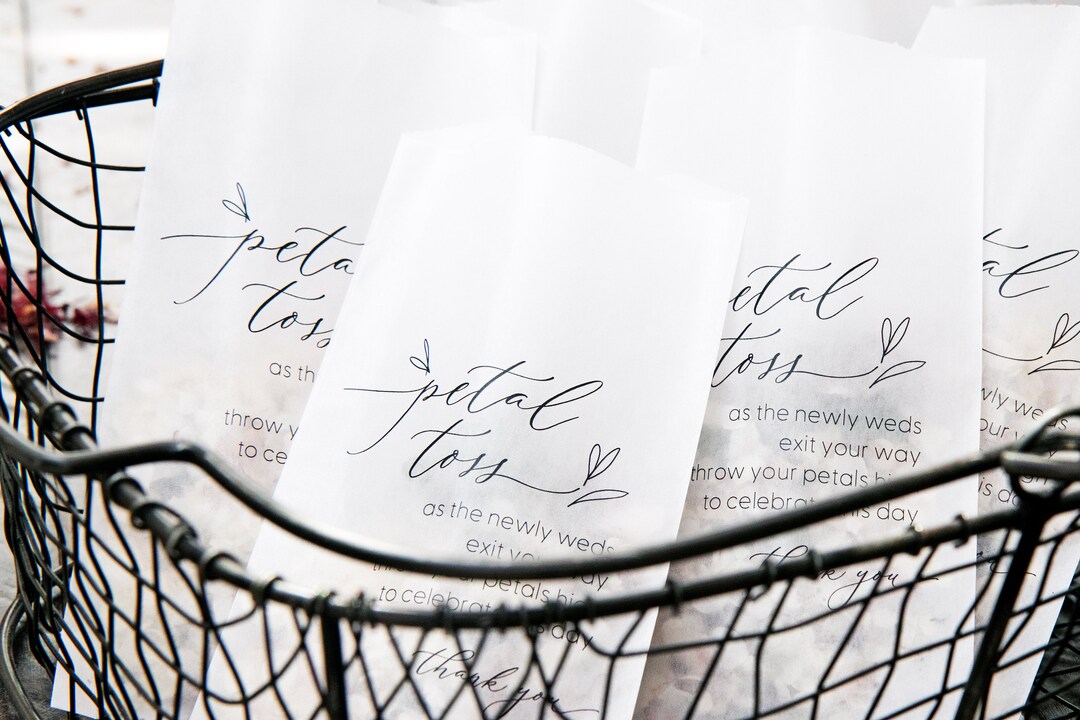 peta
toss
as th
throw y
to ce
petal
toss
as the newly weds
exit your way
throw your petals hig
to celebrate this day
thank you
etal
toss
as the newly weds
exit your way
throw your petals hi
to celebrate this day
thank you
al
wly we
our
is da